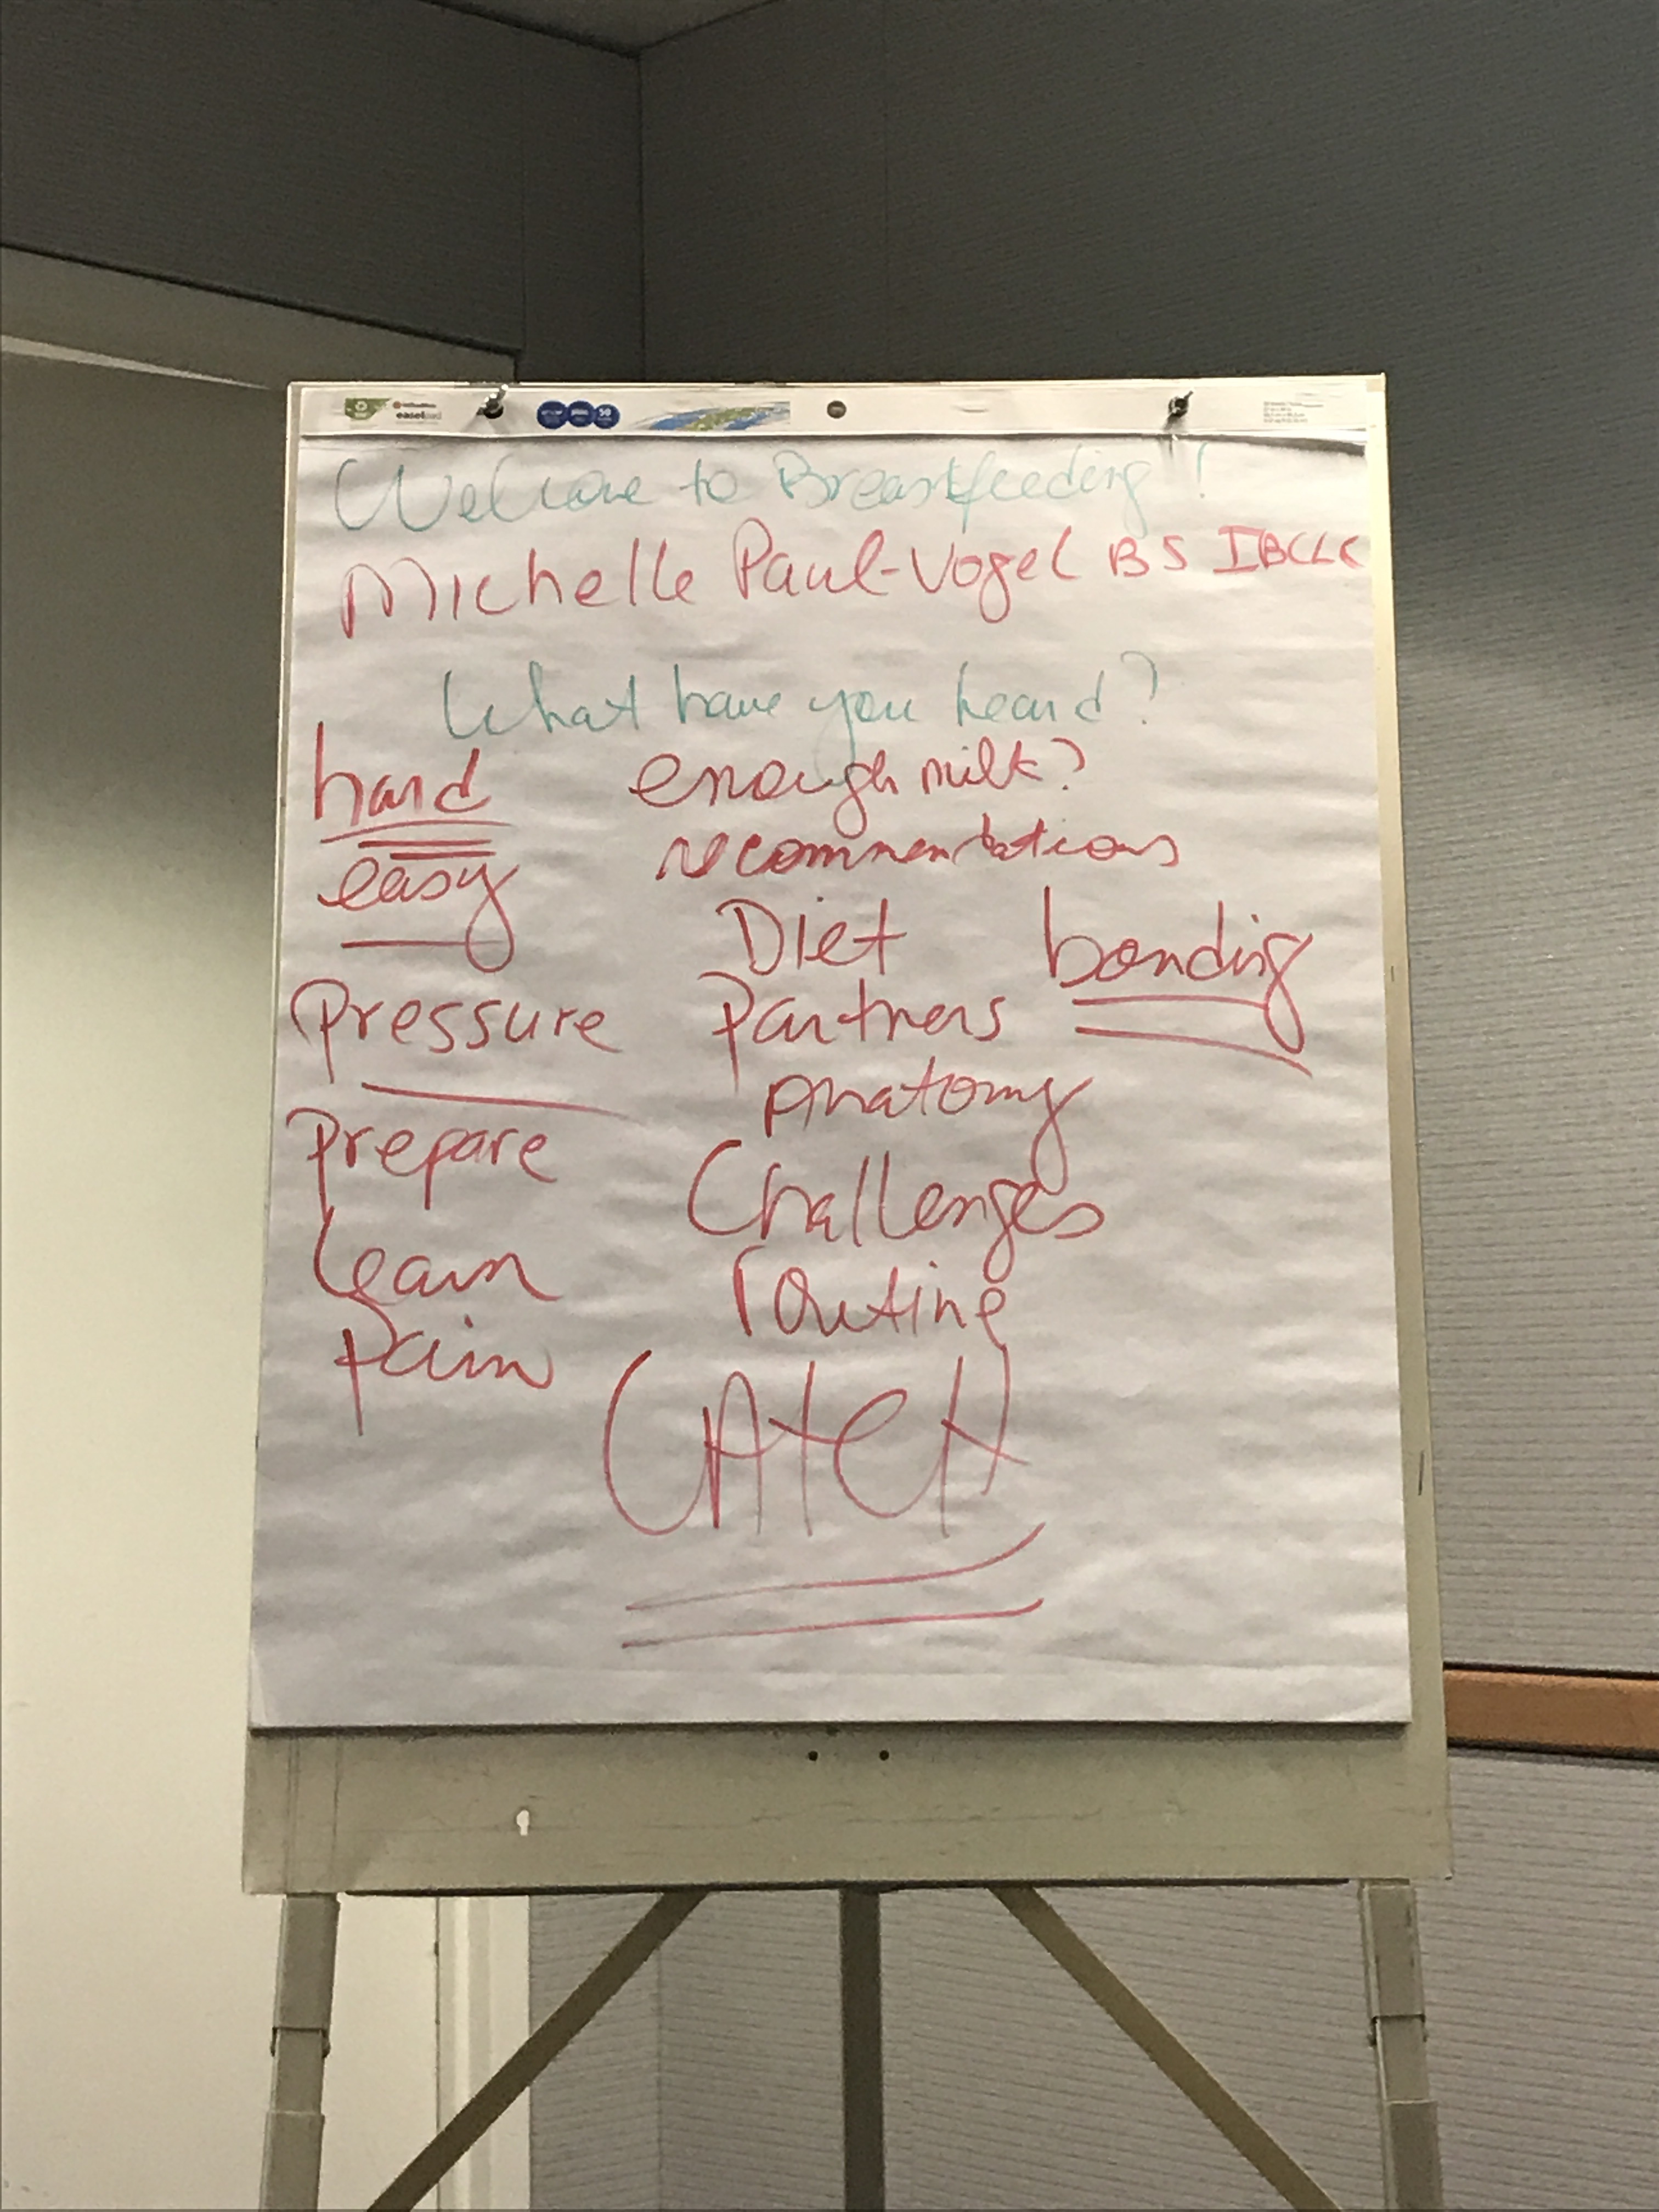 Welcome to Breastfeeding!
Michelle Paul-Vogel BS IBCLC
What have you heard?
hard enough milk?
easy recommentations
Diet bonding
Pressure Partners
Anatomy
Prepare Challenges
Learn routine
Pain
LATCH